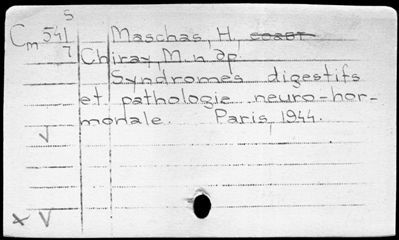 5
Cm 541 Maschas, H., соавт
7
Chiray, M. n др.
Syndromes digestifs
et pathologie neuro-hor-
monale. Paris, 1944.
V
x V